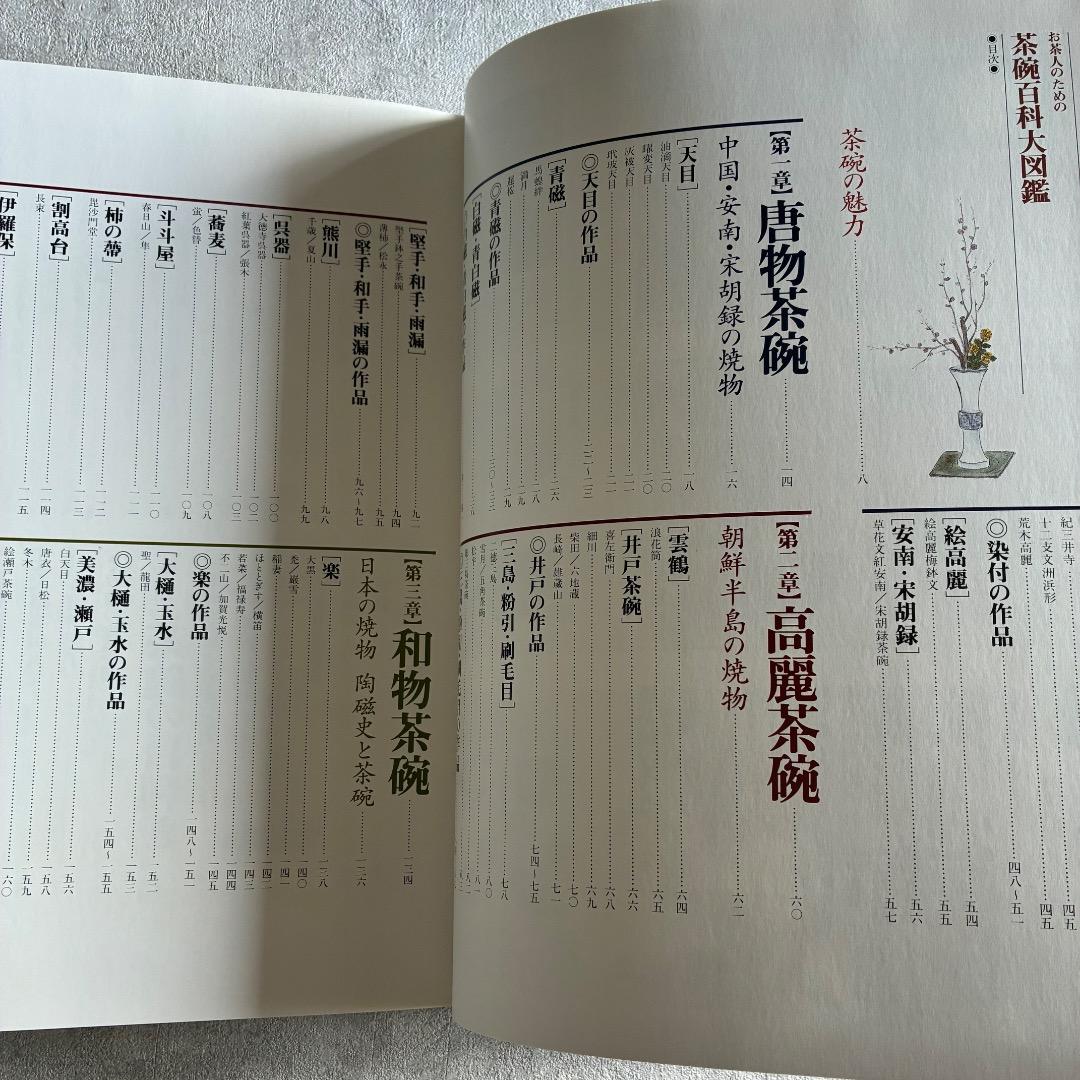 お茶人のための
茶碗百科大図鑑
●目次●
茶碗の魅力 八
【第一章】唐物茶碗 一四
中国・安南・宋胡録の焼物 一六
[天目] 一八
油滴天目 二〇
曜変天目 二〇
灰被天目 二一
玳玻天目 二一
◎天目の作品 二二～二三
[青磁] 二六
馬蝗絆 二八
満月 二九
◎青磁の作品 三〇～三三
[白磁・青白磁]
紀三井寺 四五
十二支文洲浜形 四五
荒木高麗
◎染付の作品 四八～五一
[絵高麗] 五四
絵高麗梅鉢文 五五
[安南・宋胡録] 五六
草花文紅安南／宋胡録茶碗 五七
【第二章】高麗茶碗 六〇
朝鮮半島の焼物 六二
[雲鶴] 六四
浪花筒 六五
[井戸茶碗] 六六
喜左衛門 六八
細川 六九
柴田／六地蔵 七〇
長崎／雄蔵山 七一
◎井戸の作品 七四～七五
[三島・粉引・刷毛目] 七八
二徳三島 八〇
[堅手・和手・雨漏] 九二
堅手鉢之手茶碗 九四
薄柿／松永 九五
◎堅手・和手・雨漏の作品 九六～九七
[熊川] 九八
千歳／夏山 九九
[呉器] 一〇〇
大徳寺呉器 一〇二
紅葉呉器／張木 一〇三
[蕎麦] 一〇八
蛍／色替 一〇九
[斗斗屋] 一一〇
春日山／隼 一一一
[柿の蔕] 一一二
毘沙門堂 一一三
[割高台] 一一四
長束 一一五
[伊羅保]
【第三章】和物茶碗 一三四
日本の焼物 陶磁史と茶碗 一三六
[楽] 一三八
大黒 一四〇
禿／巌雪 一四一
稲妻 一四二
ほととぎす／横笛 一四三
若菜／福禄寿 一四四
不二山／加賀光悦 一四五
◎楽の作品 一四八～一五一
[大樋・玉水] 一五二
聖／龍田 一五三
◎大樋・玉水の作品 一五四～一五五
[美濃・瀬戸] 一五六
白天目 一五八
唐衣／日松
冬木 一五九
絵瀬戸茶碗 一六〇